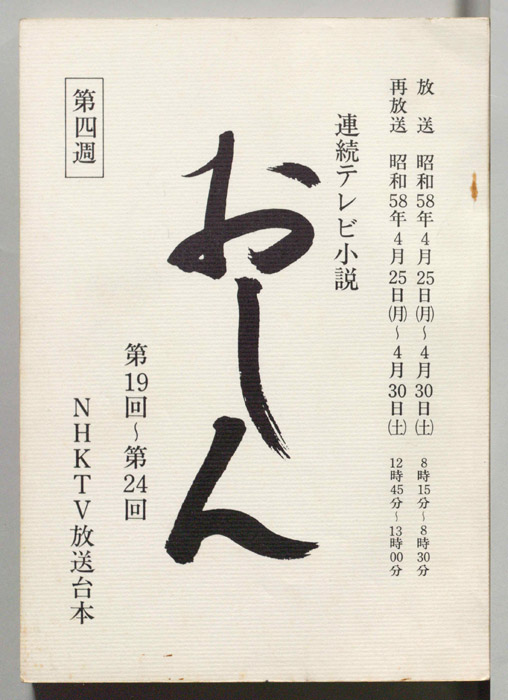 放送 昭和58年4月25日(月)～4月30日(土) 8時15分～8時30分
再放送 昭和58年4月25日(月)～4月30日(土) 12時45分～13時00分
連続テレビ小説
おしん
第19回～第24回
第四週
NHKTV放送台本